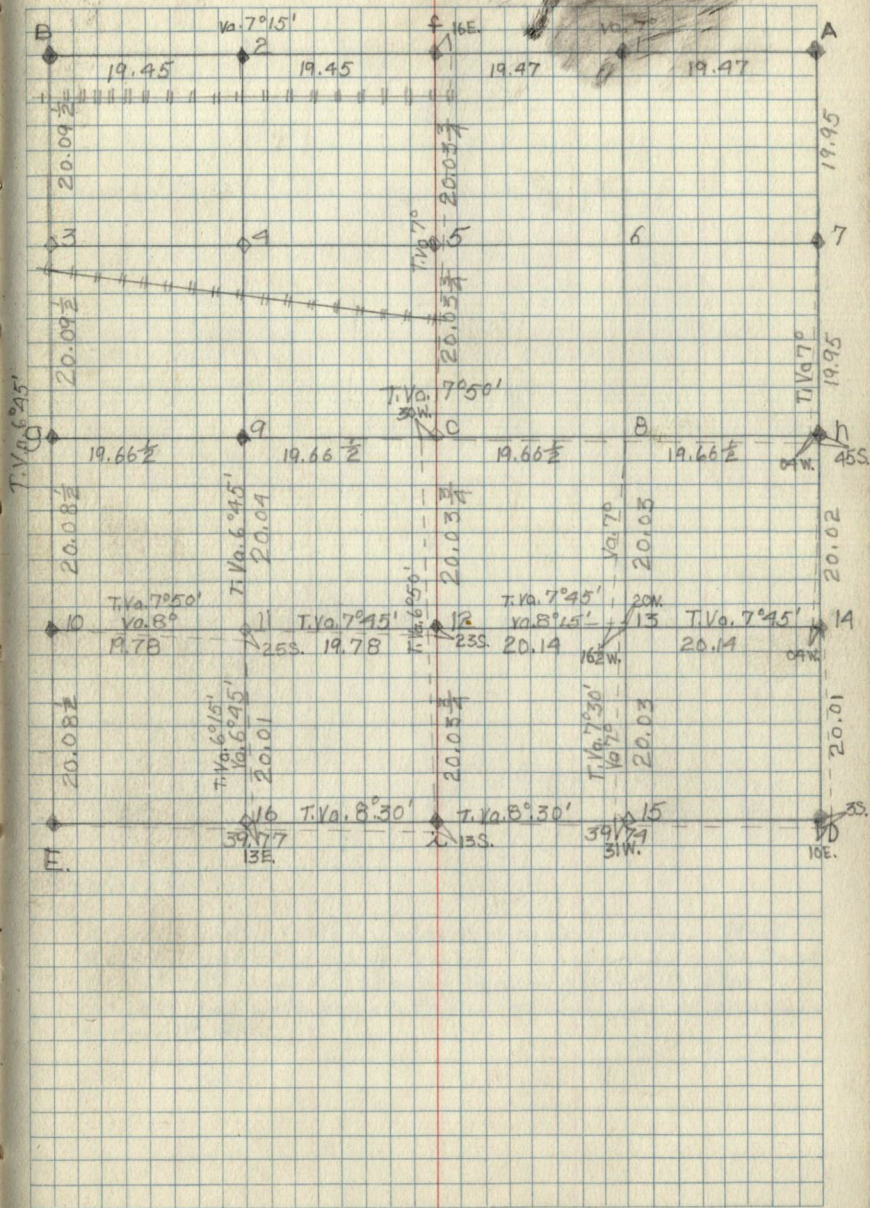 Va. 7°15'
B 2 f 16E. Va. 7° 1 A
19.45 19.45 19.47 19.47
20.09½ 20.03¾ 19.95
3 4 T.Va. 7° 5 6 7
20.09½ 20.03¾ T.Va 7° 19.95
T.Va. 6°45' T.Va. 7°50'
30W.
g 9 C 8 h
19.66½ 19.66½ 19.66½ 19.66½ 04W. 45S.
20.08½ T.Va. 6°45' 20.04 20.03¾ Va. 7° 20.03 20.02
T.Va. 7°50' T.Va. 6°50' T.Va. 7°45' 20N.
10 Va. 8° 11 T.Va. 7°45' 12 Va. 8°15' 13 T.Va. 7°45' 14
19.78 25S. 19.78 23S. 20.14 16½W. 20.14 04W.
20.08½ T.Va. 6°15' Va. 6°45' 20.01 20.03¾ T.Va. 7°30' Va 7° 20.03 20.01
16 T.Va. 8°30' T.Va. 8°30' 15 3S.
E. 39.77 i 13S. 39.74 D
13E. 31W. 10E.